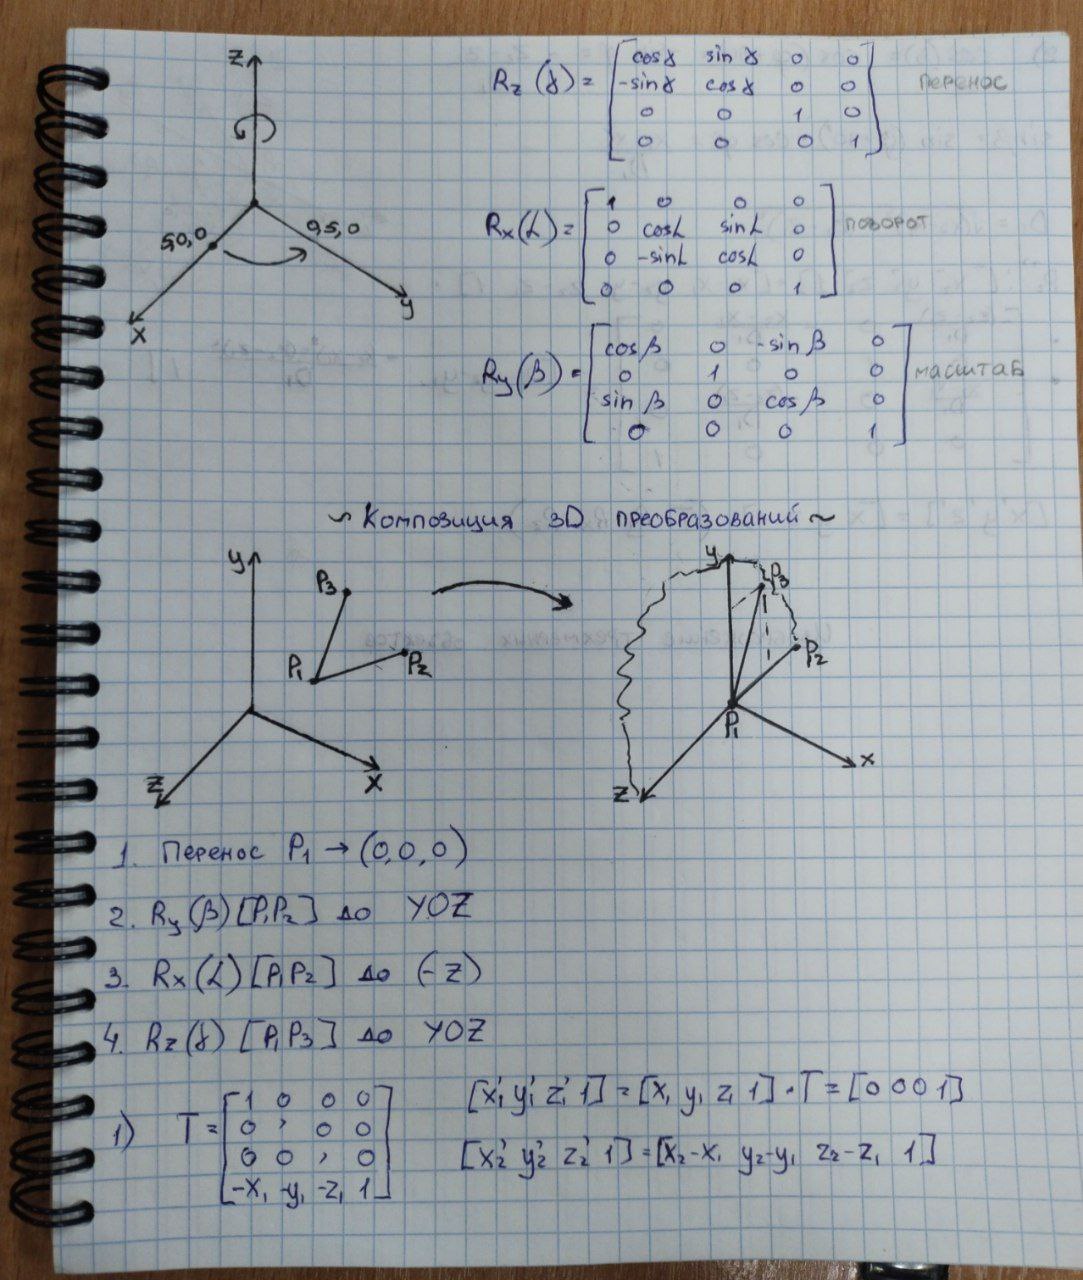 z
5,0,0
0,5,0
x
y
Rz (γ) = [cosγ sinγ 0 0
-sinγ cosγ 0 0
0 0 1 0
0 0 0 1]
перенос
Rx(α) = [1 0 0 0
0 cosα sinα 0
0 -sinα cosα 0
0 0 0 1]
поворот
Ry(β) = [cosβ 0 -sinβ 0
0 1 0 0
sinβ 0 cosβ 0
0 0 0 1]
масштаб
~ Композиция 3D преобразований ~
y
P3
P1
P2
z
x
y
P3
P2
P1
z
x
1. Перенос P1 → (0,0,0)
2. Ry(β)[P1P2] до YOZ
3. Rx(α)[P1P2] до (-z)
4. Rz(γ) [P1P3] до YOZ
1) T = [1 0 0 0
0 , 0 0
0 0 , 0
-x1 -y1 -z1 1]
[x1' y1' z1' 1] = [x1 y1 z1 1] · T = [0 0 0 1]
[x2' y2' z2' 1] = [x2-x1 y2-y1 z2-z1 1]